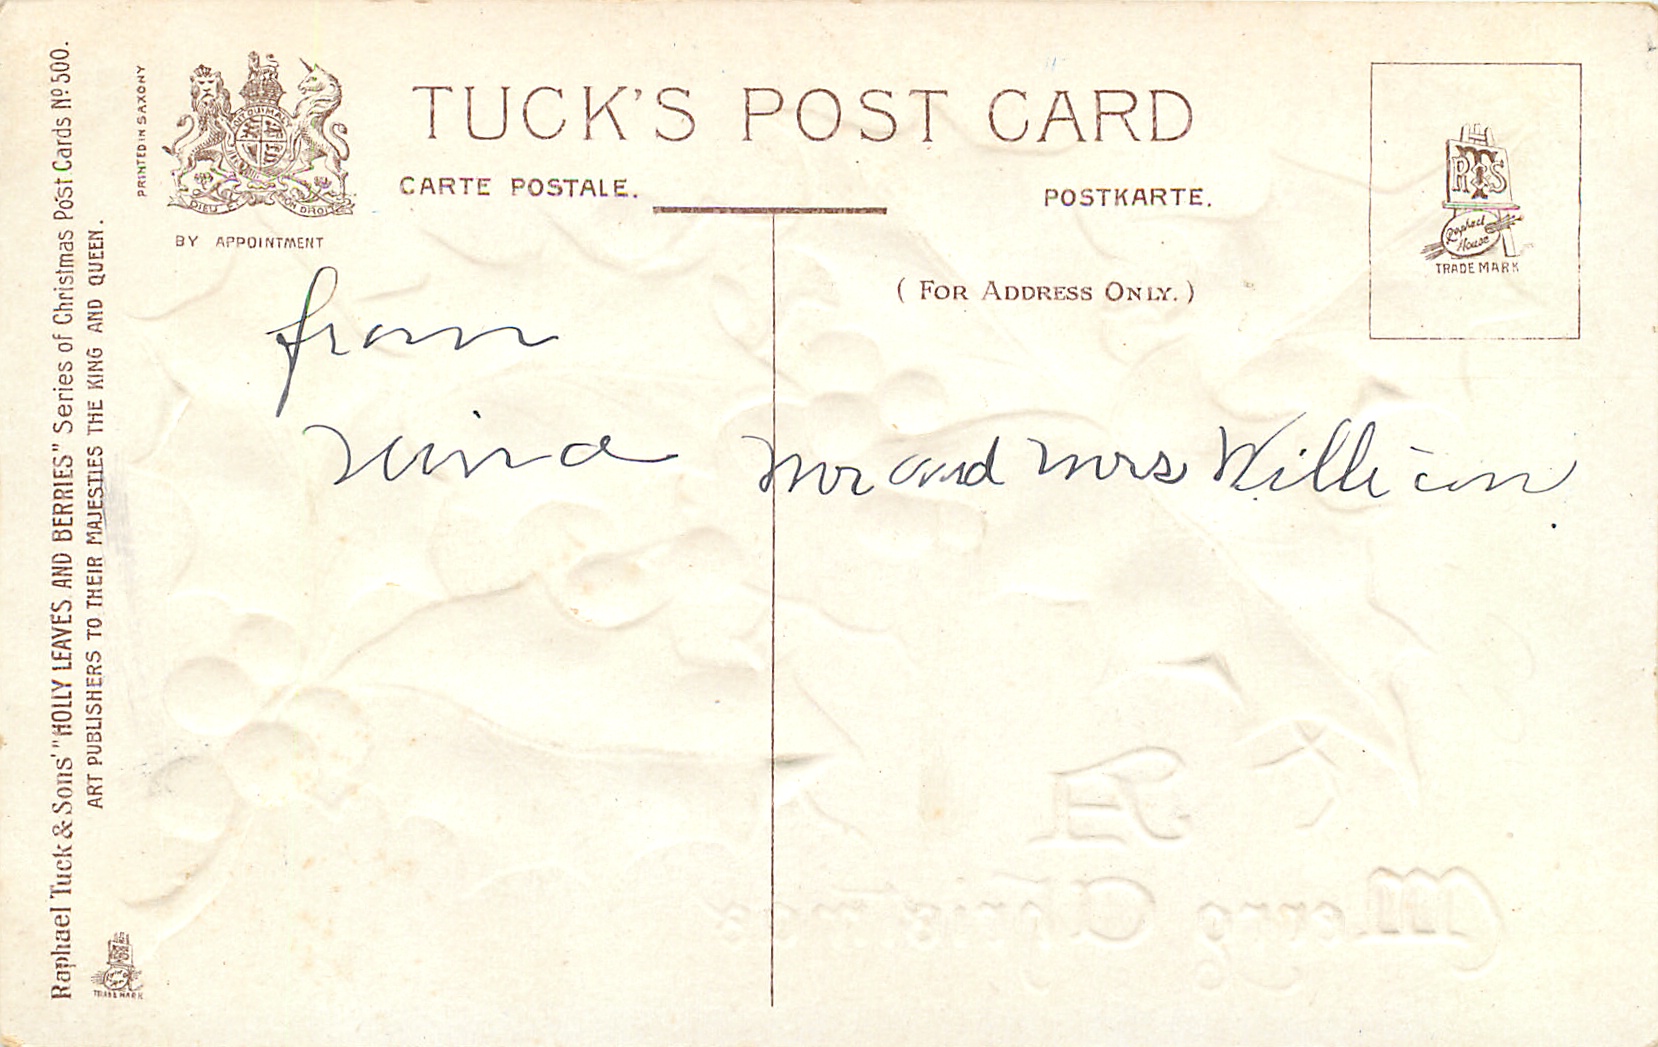 Raphael Tuck & Sons' "HOLLY LEAVES AND BERRIES" Series of Christmas Post Cards Nº 500.
ART PUBLISHERS TO THEIR MAJESTIES THE KING AND QUEEN.
TRADE MARK
PRINTED IN SAXONY
DIEU ET MON DROIT
BY APPOINTMENT
TUCK'S POST CARD
CARTE POSTALE.
POSTKARTE.
(FOR ADDRESS ONLY.)
RTS
Raphael
House
TRADE MARK
from
Nina
Mr and Mrs William
A
Merry Christmas